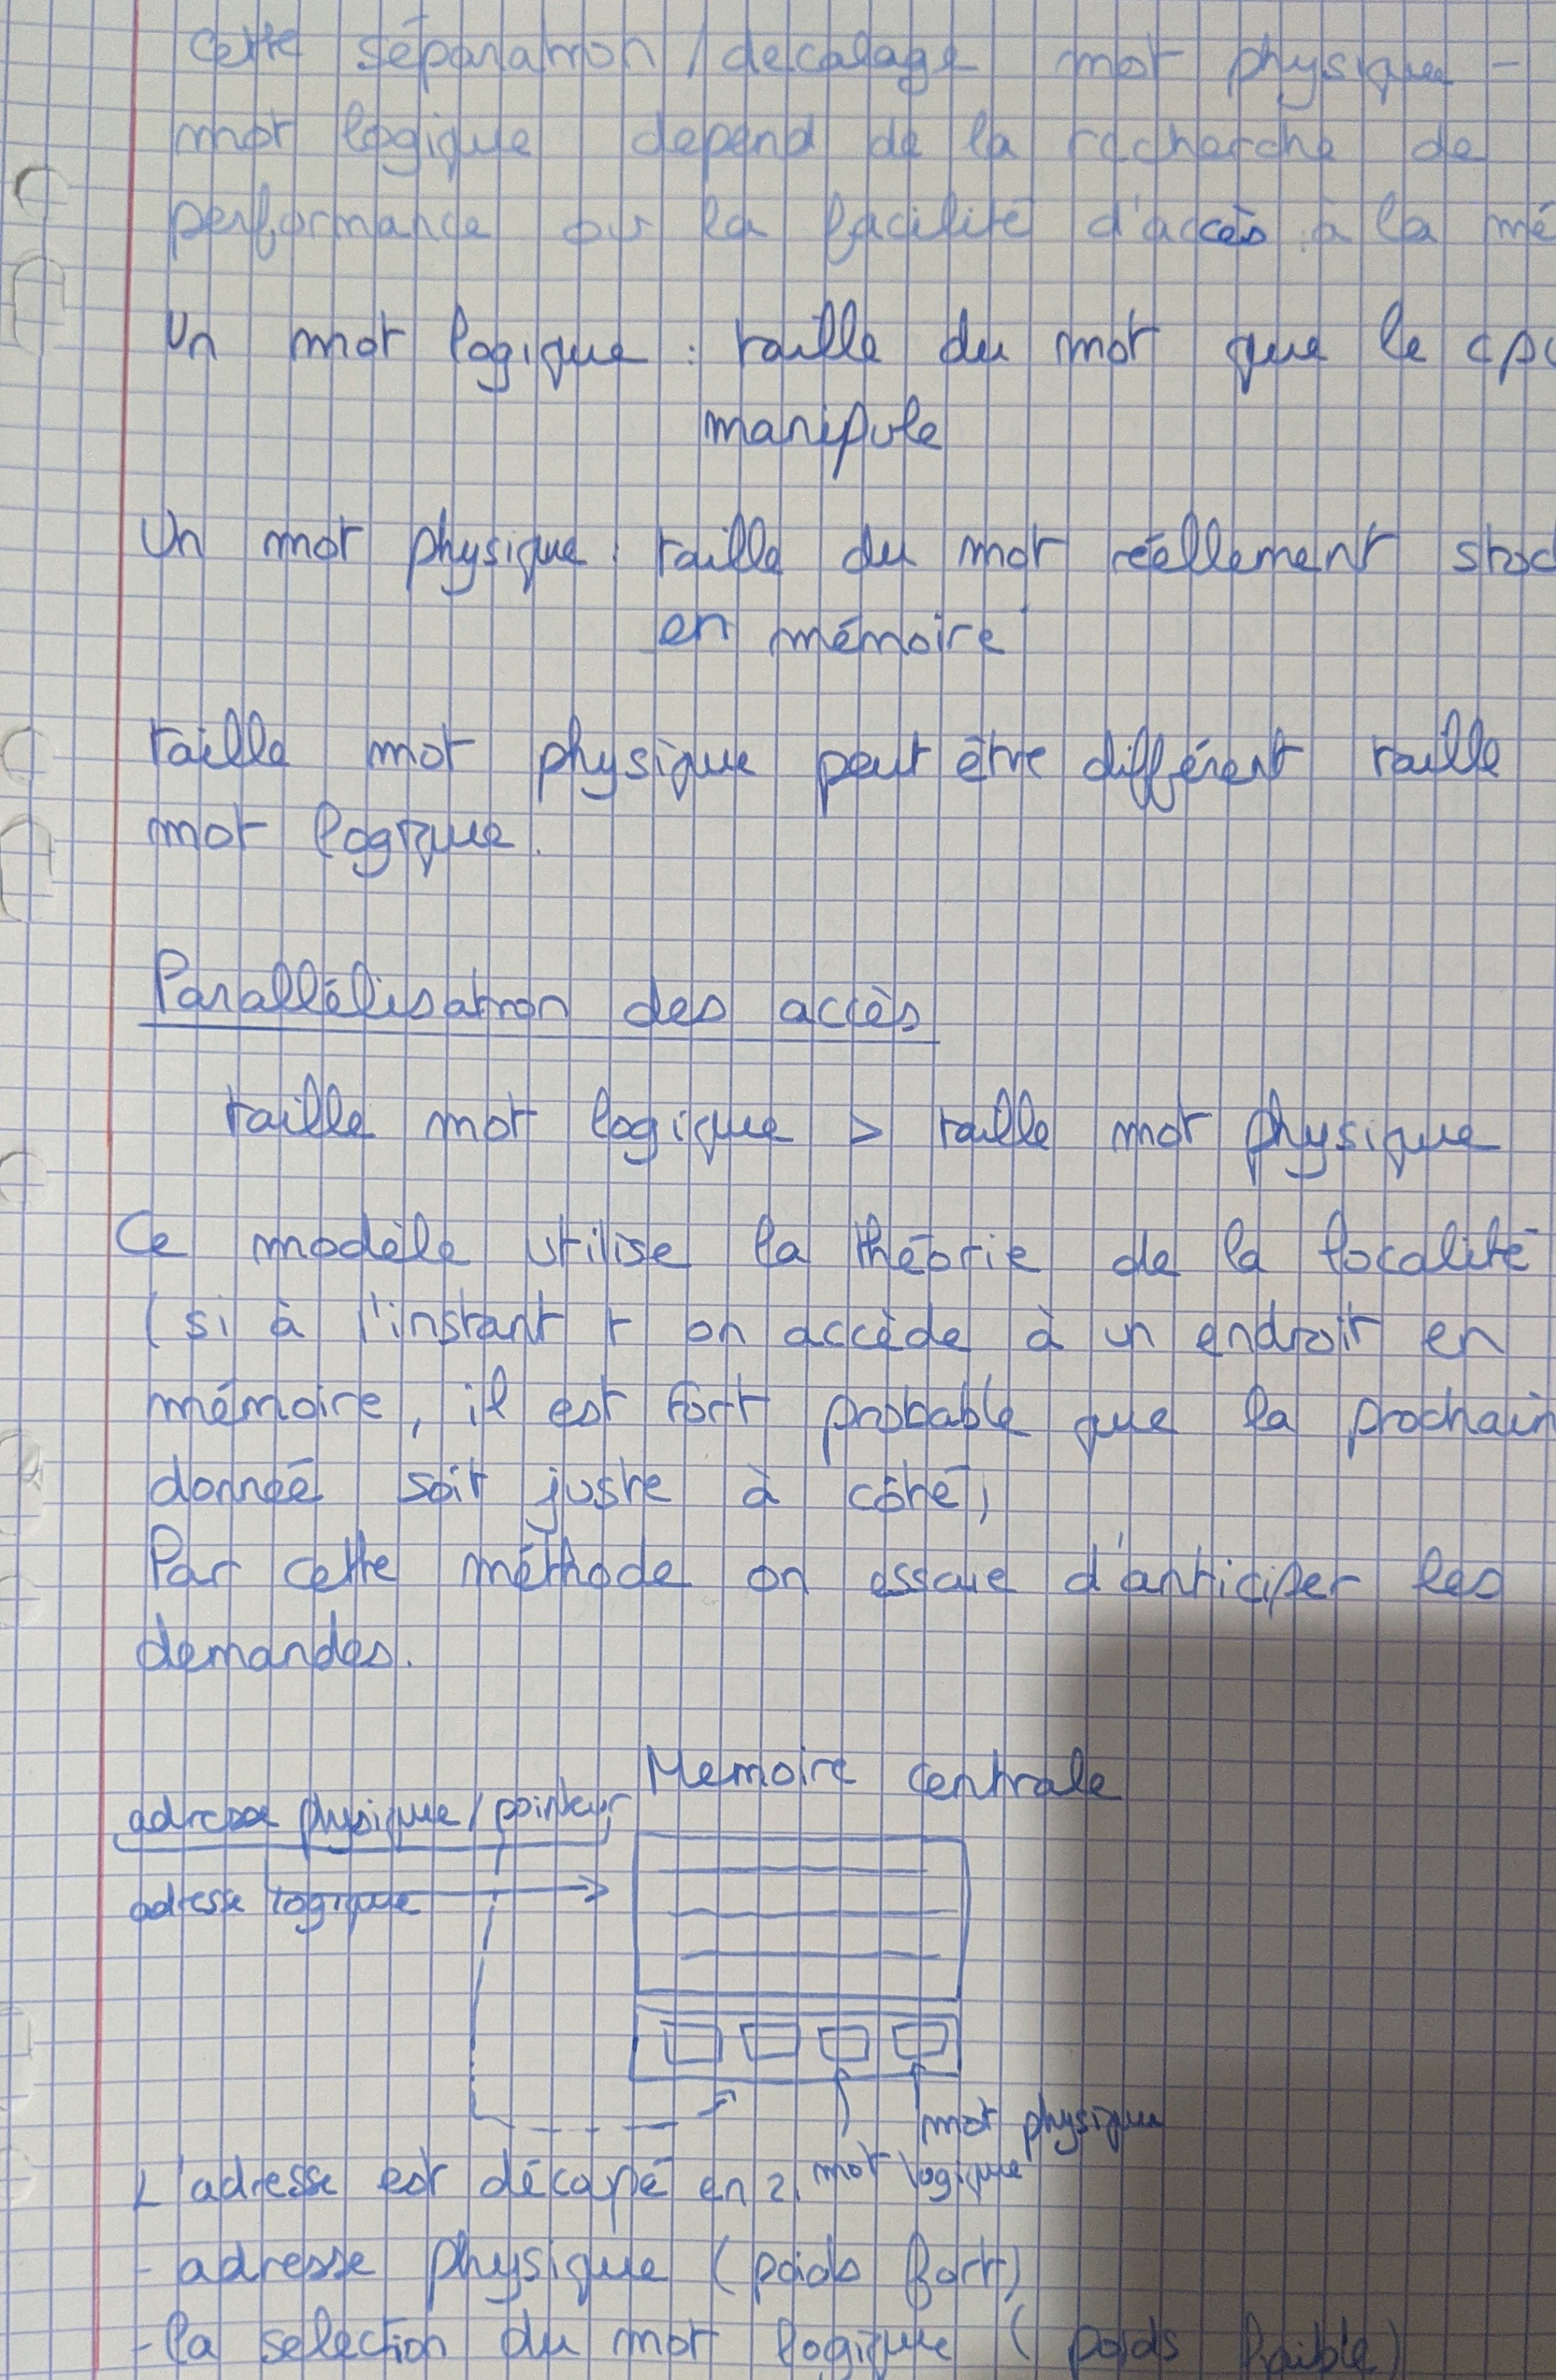 Cette séparation / decalage mot physique -
mot logique depend de la recherche de
performance ou la facilité d'accès à la mé
Un mot logique : taille du mot que le cpu
manipule
Un mot physique : taille du mot réellement stoc
en mémoire
taille mot physique peut être différent taille
mot logique.
Parallélisation des accès
taille mot logique > taille mot physique
Ce modèle utilise la théorie de la localité
(si à l'instant t on accède à un endroit en
mémoire, il est fort probable que la prochain
donnée soit juste à côté)
Par cette méthode on essaie d'anticiper les
demandes.
Memoire centrale
adresse physique / pointeur
adresse logique
mot physique
mot logique
L'adresse est décapé en 2.
- adresse physique (poids fort)
- la selection du mot logique (poids faible)